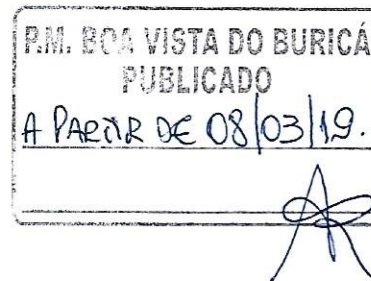 P.M. BOA VISTA DO BURICÁ
PUBLICADO
A PARTIR DE 08/03/19.